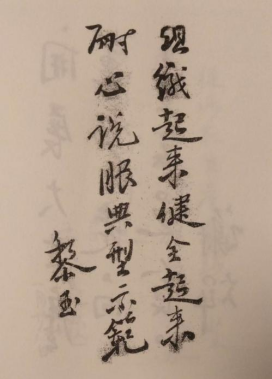 组织起来健全起来
耐心说服典型示范
黎玉